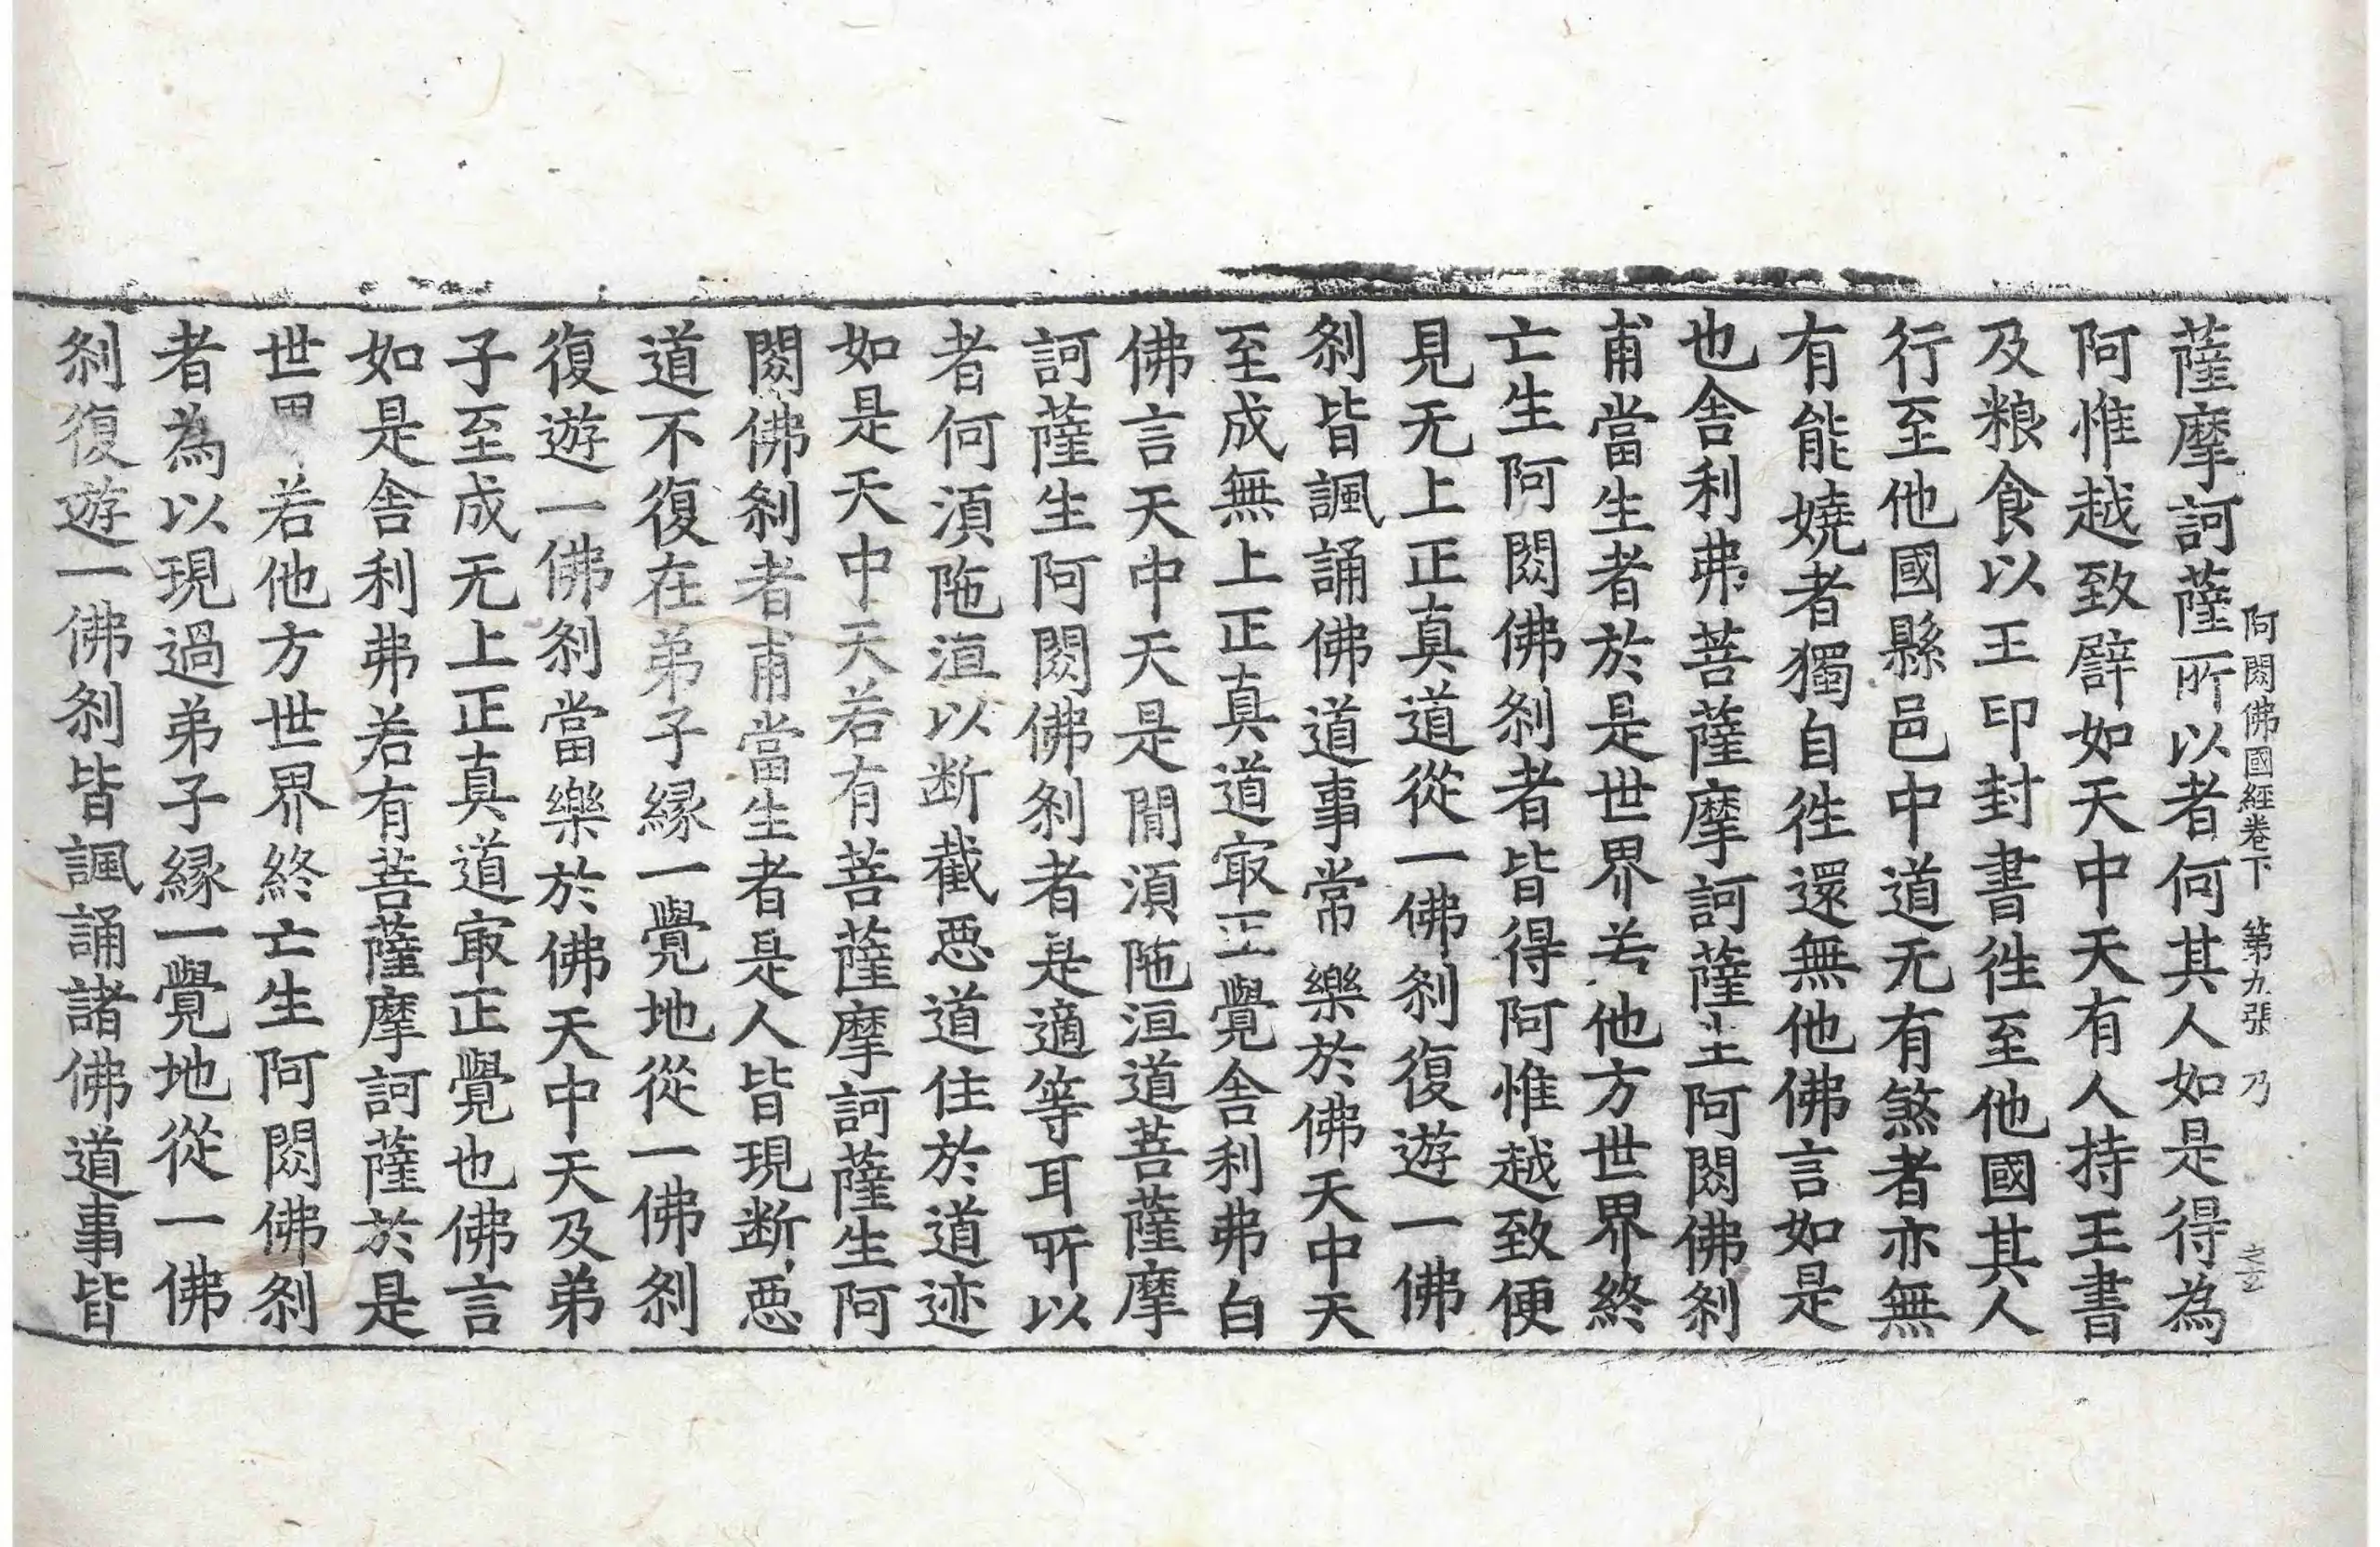 阿閦佛國經卷下 第九張 乃
薩摩訶薩所以者何其人如是得為
阿惟越致譬如天中天有人持王書
及粮食以王印封書徃至他國其人
行至他國縣邑中道无有煞者亦無
有能嬈者獨自徃還無他佛言如是
也舍利弗菩薩摩訶薩生阿閦佛剎
甫當生者於是世界若他方世界終
亡生阿閦佛剎者皆得阿惟越致便
見无上正真道從一佛剎復遊一佛
剎皆諷誦佛道事常樂於佛天中天
至成無上正真道冣正覺舍利弗白
佛言天中天是閒湏陁洹道菩薩摩
訶薩生阿閦佛剎者是適等耳所以
者何湏陁洹以断截惡道住於道迹
如是天中天若有菩薩摩訶薩生阿
閦佛剎者甫當生者是人皆現断惡
道不復在弟子縁一覺地從一佛剎
復遊一佛剎當樂於佛天中天及弟
子至成无上正真道冣正覺也佛言
如是舍利弗若有菩薩摩訶薩於是
世界若他方世界終亡生阿閦佛剎
者為以現過弟子縁一覺地從一佛
剎復遊一佛剎皆諷誦諸佛道事皆